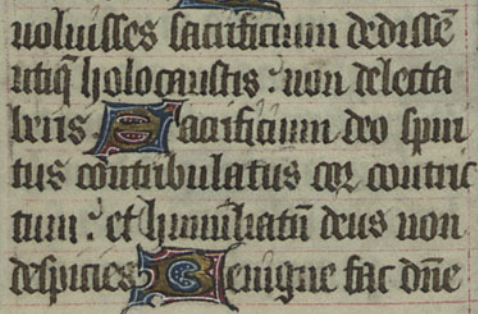 uoluisses sacrificium dedissē
utiq̄ holocaustis : non delecta
beris Sacrificium deo spiri
tus contribulatus cor contric
tum : et humiliatū deus non
despicies Benigne fac dn̄e